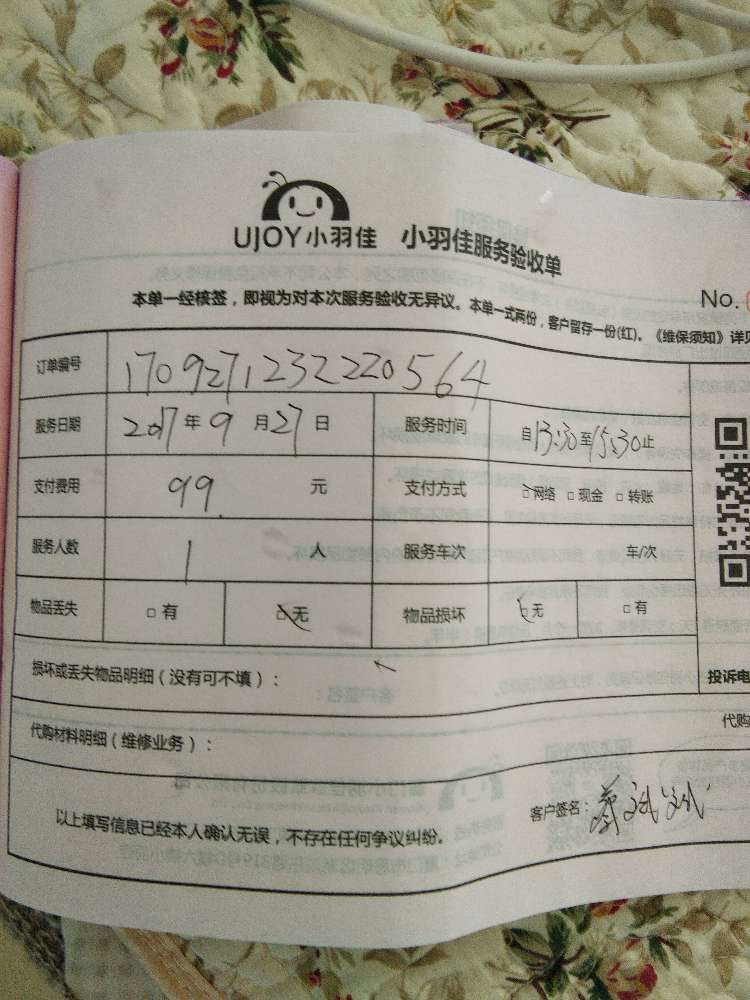 UJOY小羽佳 小羽佳服务验收单
No.
本单一经核签，即视为对本次服务验收无异议。本单一式两份，客户留存一份(红)。《维保须知》详见
订单编号 1709271232220564
服务日期 2017年9月27日 服务时间 自13:30至15:30止
支付费用 99 元 支付方式 □网络 □现金 □转账
服务人数 1 人 服务车次 车/次
物品丢失 □有 □无 物品损坏 □无 □有
损坏或丢失物品明细（没有可不填）：
投诉电
代购材料明细（维修业务）：
代购
以上填写信息已经本人确认无误，不存在任何争议纠纷。
客户签名：